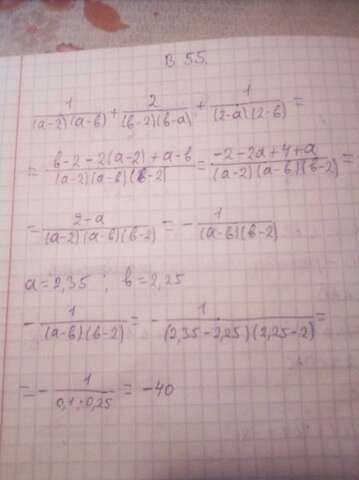 В 55.
1/((a-2)(a-b)) + 2/((b-2)(b-a)) + 1/((2-a)(2-b)) =
= (b-2-2(a-2)+a-b)/((a-2)(a-b)(b-2)) = (-2-2a+4+a)/((a-2)(a-b)(b-2)) =
= (2-a)/((a-2)(a-b)(b-2)) = - 1/((a-b)(b-2))
a=2,35 ; b=2,25
- 1/((a-b)(b-2)) = - 1/((2,35-2,25)(2,25-2)) =
= - 1/(0,1·0,25) = -40